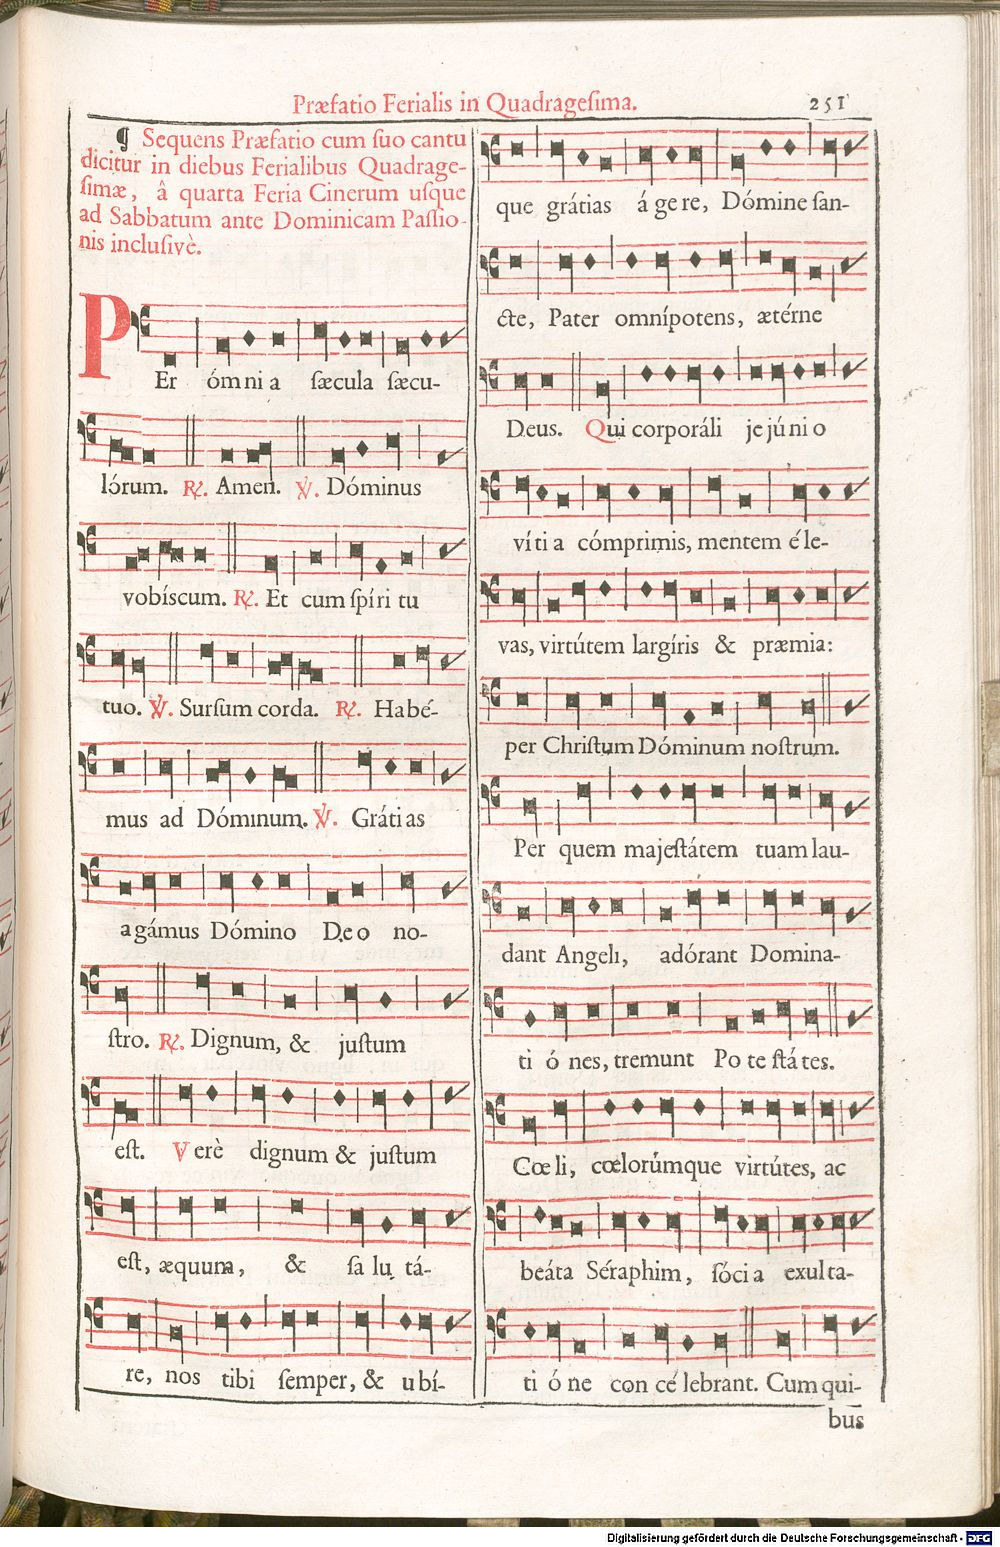 Præfatio Ferialis in Quadrageſima.
251
¶ Sequens Præfatio cum ſuo cantu
dicitur in diebus Ferialibus Quadrage-
ſimæ, â quarta Feria Cinerum uſque
ad Sabbatum ante Dominicam Paſſio-
nis incluſivè.
PEr ómni a ſæcula ſæcu-
lórum. ℟. Amen. ℣. Dóminus
vobíscum. ℟. Et cum ſpíri tu
tuo. ℣. Surſum corda. ℟. Habé-
mus ad Dóminum. ℣. Gráti as
agámus Dómino Deo no-
ſtro. ℟. Dignum, & juſtum
eſt. Verè dignum & juſtum
eſt, æquum, & ſa lu tá-
re, nos tibi ſemper, & ubí-
que grátias á ge re, Dómine ſan-
cte, Pater omnípotens, ætérne
Deus. Qui corporáli je jú ni o
víti a cómprimis, mentem é le-
vas, virtútem largíris & præmia:
per Chriſtum Dóminum noſtrum.
Per quem majeſtátem tuam lau-
dant Angeli, adórant Domina-
ti ó nes, tremunt Po te ſtá tes.
Cœ li, cœlorúmque virtútes, ac
beáta Séraphim, ſóci a exulta-
ti ó ne con cé lebrant. Cum qui-
bus
Digitalisierung gefördert durch die Deutsche Forschungsgemeinschaft - DFG